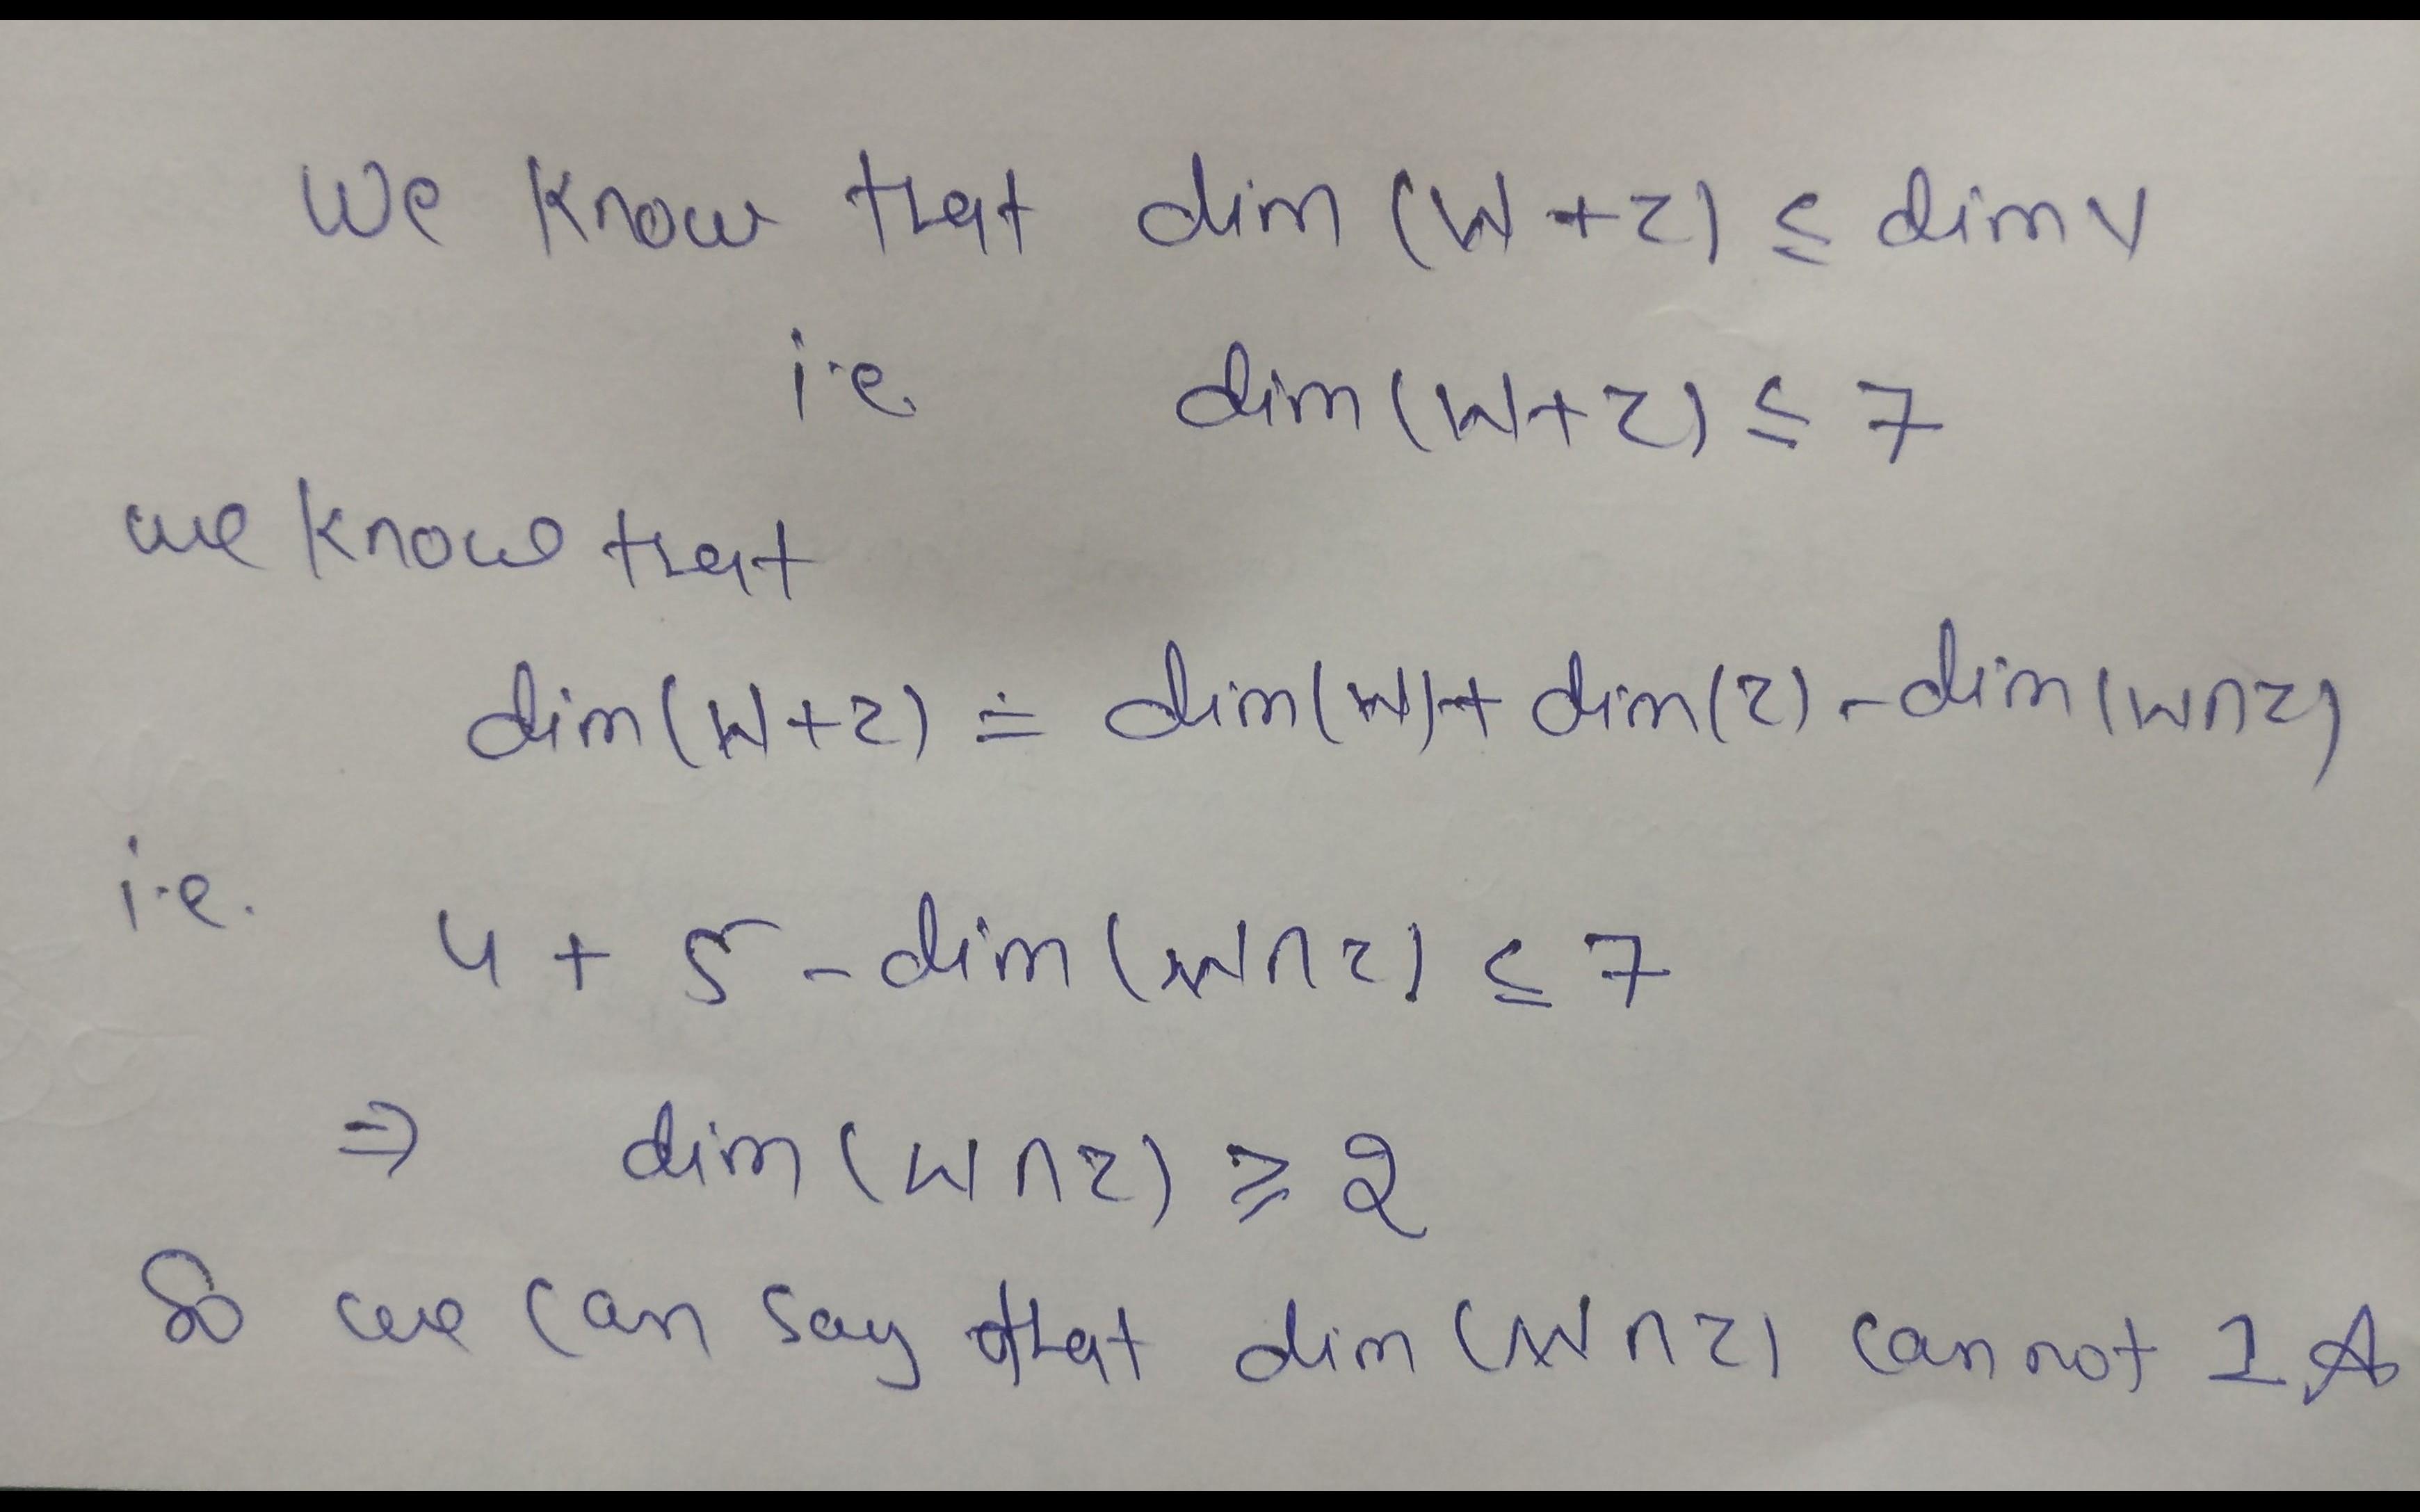 We know that dim (W+Z) ≤ dim V
i.e. dim (W+Z) ≤ 7
we know that
dim (W+Z) = dim(W) + dim(Z) - dim(W∩Z)
i.e. 4 + 5 - dim (W∩Z) ≤ 7
⇒ dim (W∩Z) ≥ 2
So we can say that dim (W∩Z) cannot 1